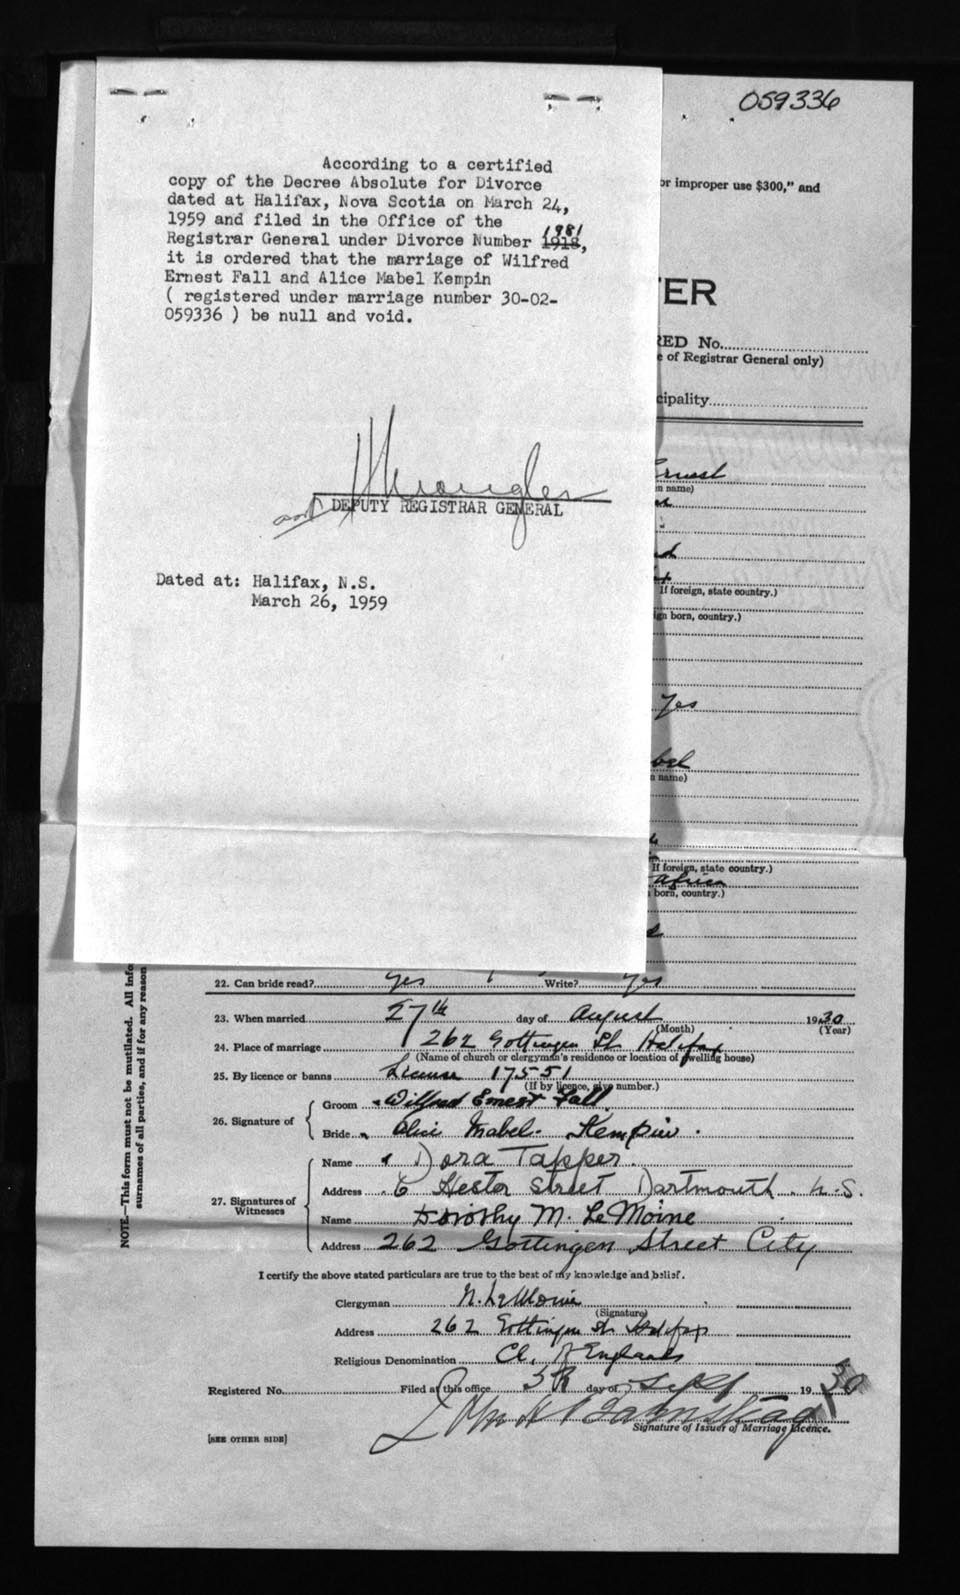 059336
According to a certified
copy of the Decree Absolute for Divorce
dated at Halifax, Nova Scotia on March 24,
1959 and filed in the Office of the
1981
Registrar General under Divorce Number 1918,
it is ordered that the marriage of Wilfred
Ernest Fall and Alice Mabel Kempin
( registered under marriage number 30-02-
059336 ) be null and void.
DEPUTY REGISTRAR GENERAL
Dated at: Halifax, N.S.
March 26, 1959
or improper use $300," and
TER
RED No.
e of Registrar General only)
cipality
Ernest
n name)
If foreign, state country.)
ign born, country.)
Yes
bel
n name)
If foreign, state country.)
Africa
born, country.)
NOTE.—This form must not be mutilated. All info
surnames of all parties, and if for any reason
22. Can bride read? Yes Write? Yes
23. When married 27th day of August 1930
(Month) (Year)
24. Place of marriage 262 Gottingen St Halifax
(Name of church or clergyman's residence or location of dwelling house)
25. By licence or banns License 17551
(If by licence, give number.)
26. Signature of Groom Wilfred Ernest Fall
Bride Alice Mabel Kempin
27. Signatures of Witnesses
Name Dora Tapper
Address 6 Hester Street Dartmouth N.S.
Name Dorothy M. LeMoine
Address 262 Gottingen Street City
I certify the above stated particulars are true to the best of my knowledge and belief.
Clergyman N. LeMoine
(Signature)
Address 262 Gottingen St Halifax
Religious Denomination Ch. of England
Registered No. Filed at this office 5th day of Sept 1930
Signature of Issuer of Marriage Licence.
[SEE OTHER SIDE]